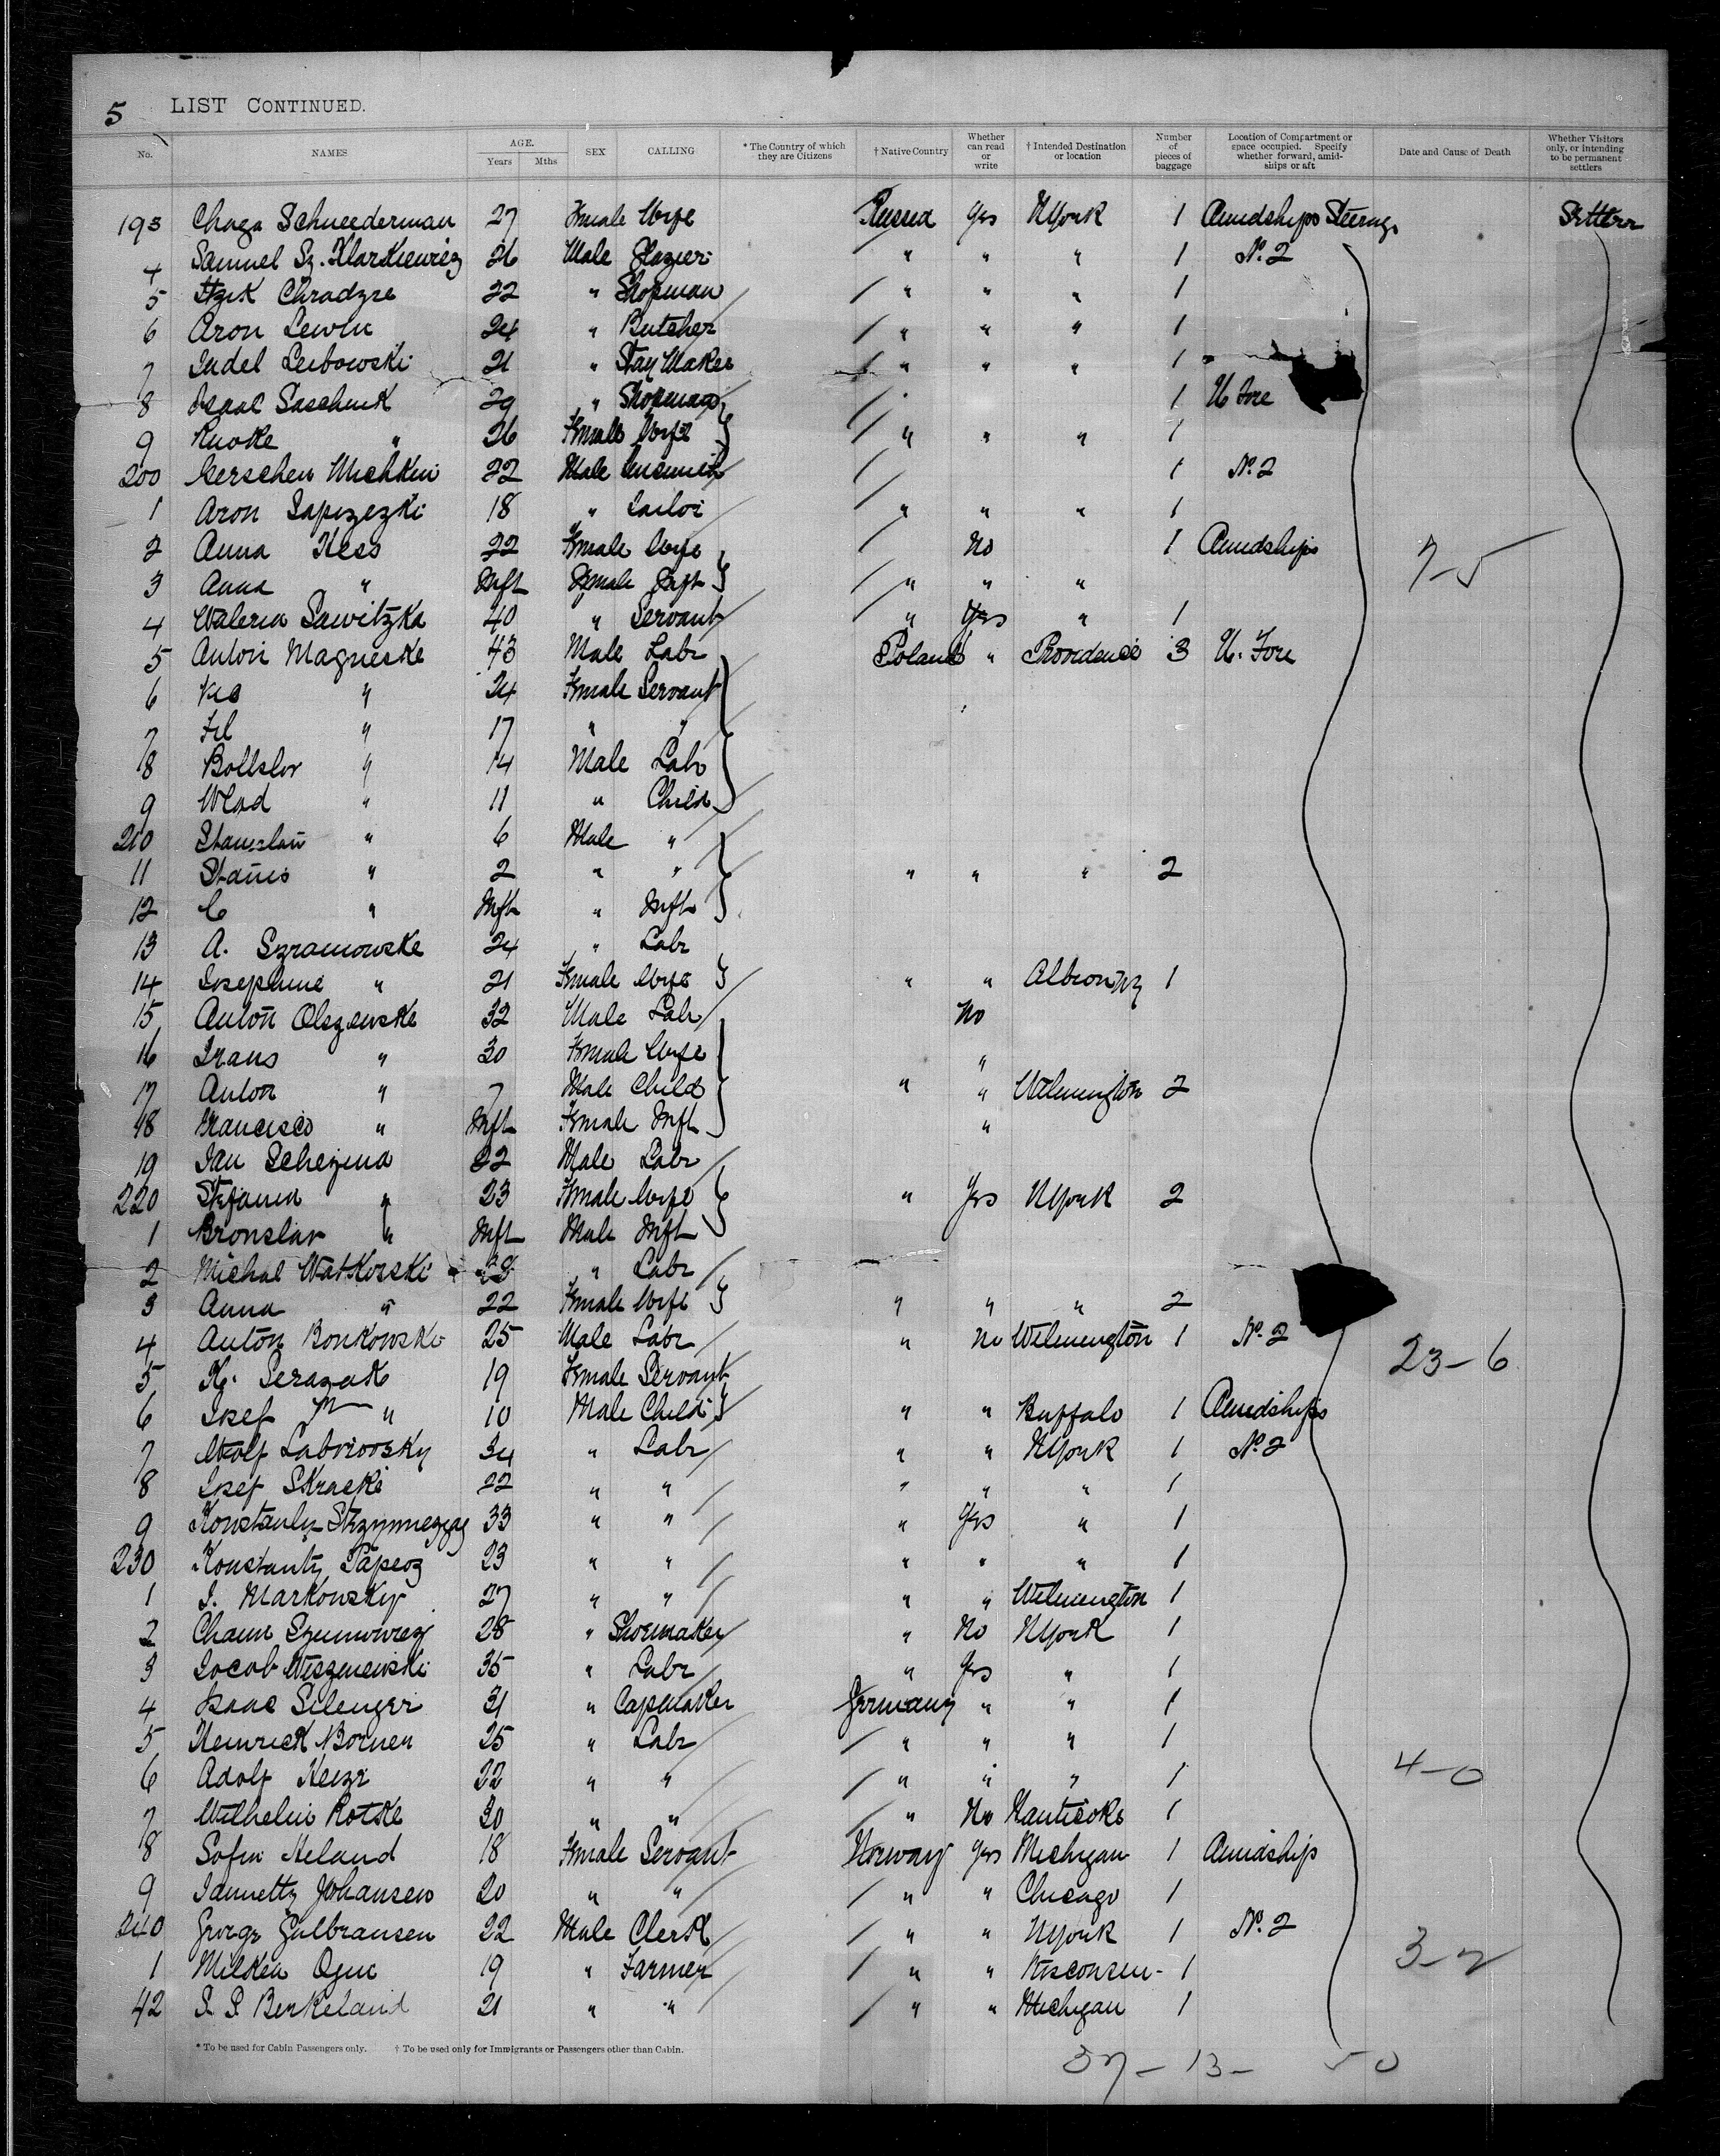 5 LIST CONTINUED.
No. NAMES AGE. Years Mths SEX CALLING * The Country of which they are Citizens † Native Country Whether can read or write † Intended Destination or location Number of pieces of baggage Location of Compartment or space occupied. Specify whether forward, amidships or aft Date and Cause of Death Whether Visitors only, or intending to be permanent settlers
193 Chaga Schneederman 27 Female Wife Russia Yes NYork 1 Amidships Steerage Settler
4 Samuel Sz. Klarkiewiez 26 Male Glazier " " " 1 No. 2
5 Itzik Chradzre 22 " Shopman " " " 1
6 Aron Lewin 24 " Butcher " " " 1
7 Judel Leibowski 21 " Stay Maker " " " 1
8 Isaac Saschuk 29 " Shopman 1 U Fore
9 Ruoke " 26 Female Wife " " " 1
200 Gerschen Mishkin 22 Male 1 No. 2
1 Aron Sapizezki 18 " Tailor " " " 1
2 Anna Hess 22 Female Wife No 1 Amidships 7-5
3 Anna " Inft Female Inft " " "
4 Waleria Sawitzka 40 " Servant " Yes " 1
5 Anton Magneske 43 Male Labr Poland " Providence 3 U. Fore
6 " 24 Female Servant
7 " 17 " "
8 Bollslor " 14 Male Labr
9 Wlad " 11 " Child
210 Stanslau " 6 Male "
11 Stanis " 2 " " " " " 2
12 C " Inft " Inft
13 A. Szramowske 24 " Labr
14 Josephine " 21 Female Wife " " Albion NY 1
15 Anton Olszewske 32 Male Labr No
16 Frans " 30 Female Wife "
17 Anton " 7 Male Child " " Wilmington 2
18 Francisco " Inft Female Inft "
19 Jan Schezina 22 Male Labr
220 Stefania " 23 Female Wife " Yes NYork 2
1 Bronslav " Inft Male Inft
2 Michal Watkosski 28 " Labr
3 Anna " 22 Female Wife " " " 2
4 Anton Bonkowske 25 Male Labr " No Wilmington 1 No. 2 23-6
5 K. Serazak 19 Female Servant
6 Josef " 10 Male Child " " Buffalo 1 Amidships
7 Wolf Labriovsky 34 " Labr " " NYork 1 No. 2
8 Josef Skracke 22 " " " " " 1
9 Konstanty 33 " " " Yes " 1
230 Konstanty Papeoz 23 " " " " " 1
1 J. Markowsky 27 " " " " Wilmington 1
2 Chaim Szumowicz 28 " Shoemaker " No NYork 1
3 Jacob Wiszniewski 35 " Labr " Yes " 1
4 Isaac Silenger 31 " Capmaker Germany " " 1
5 Heinrick Bornen 25 " Labr " " " 1
6 Adolf Keizr 22 " " " " " 1 4-0
7 Wilhelm Rotske 30 " " " No Nanticoke 1
8 Sofia Heland 18 Female Servant Norway Yes Michigan 1 Amidship
9 Jannette Johansen 20 " " " " Chicago 1
240 George Gulbransen 22 Male Clerk " " NYork 1 No. 2
1 Milkea Ogne 19 " Farmer " " Wisconsin - 1 3-2
42 S. S. Berkeland 21 " " " " Michigan 1
* To be used for Cabin Passengers only. † To be used only for Immigrants or Passengers other than Cabin.
37 - 13 - 50